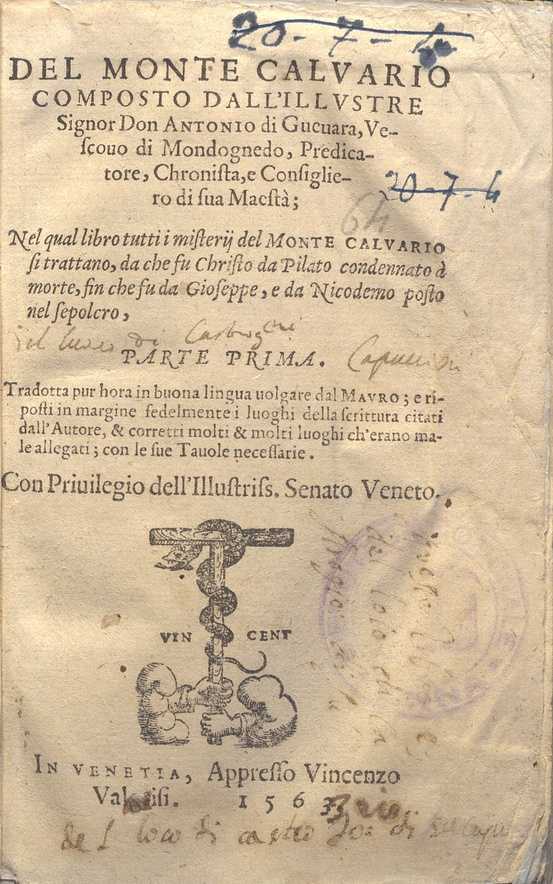 20-7-4
DEL MONTE CALVARIO
COMPOSTO DALL'ILLVSTRE
Signor Don ANTONIO di Gueuara, Ve-
ſcouo di Mondognedo, Predica-
tore, Chroniſta, e Conſiglie-
ro di ſua Maeſtà;
20-7-4
64
Nel qual libro tutti i miſterij del MONTE CALVARIO
ſi trattano, da che fu Chriſto da Pilato condennato à
morte, fin che fu da Gioſeppe, e da Nicodemo poſto
nel ſepolcro,
del luoco di
PARTE PRIMA.
Tradotta pur hora in buona lingua uolgare dal MAVRO; e ri-
poſti in margine fedelmente i luoghi della ſcrittura citati
dall'Autore, & corretti molti & molti luoghi ch'erano ma-
le allegati; con le ſue Tauole neceſſarie.
Con Priuilegio dell'Illuſtriſſ. Senato Veneto.
VIN CENT
IN VENETIA, Appreſſo Vincenzo
Valgriſi. 1563
del loco di caſtro